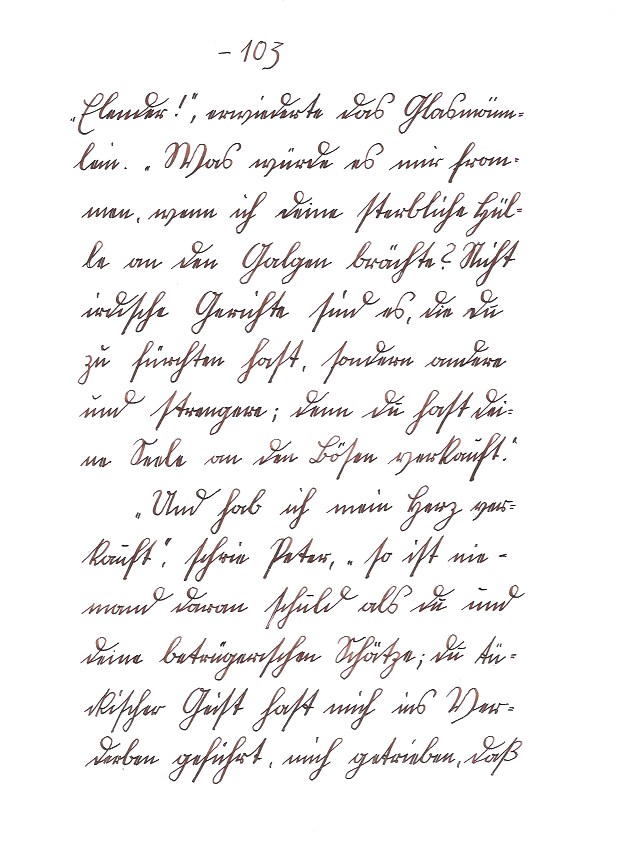 – 103
„Elender!", erwiederte das Glasmänn-
lein. „Was würde es mir from-
men, wenn ich deine sterbliche Hül-
le an den Galgen brächte? Nicht
irdische Gerichte sind es, die du
zu fürchten hast, sondern andere
und strengere; denn du hast dei-
ne Seele an den Bösen verkauft."
„Und hab ich mein Herz ver-
kauft", schrie Peter, „so ist nie-
mand daran schuld als du und
deine betrügerischen Schätze; du tü-
ckischer Geist hast mich ins Ver-
derben geführt, mich getrieben, daß